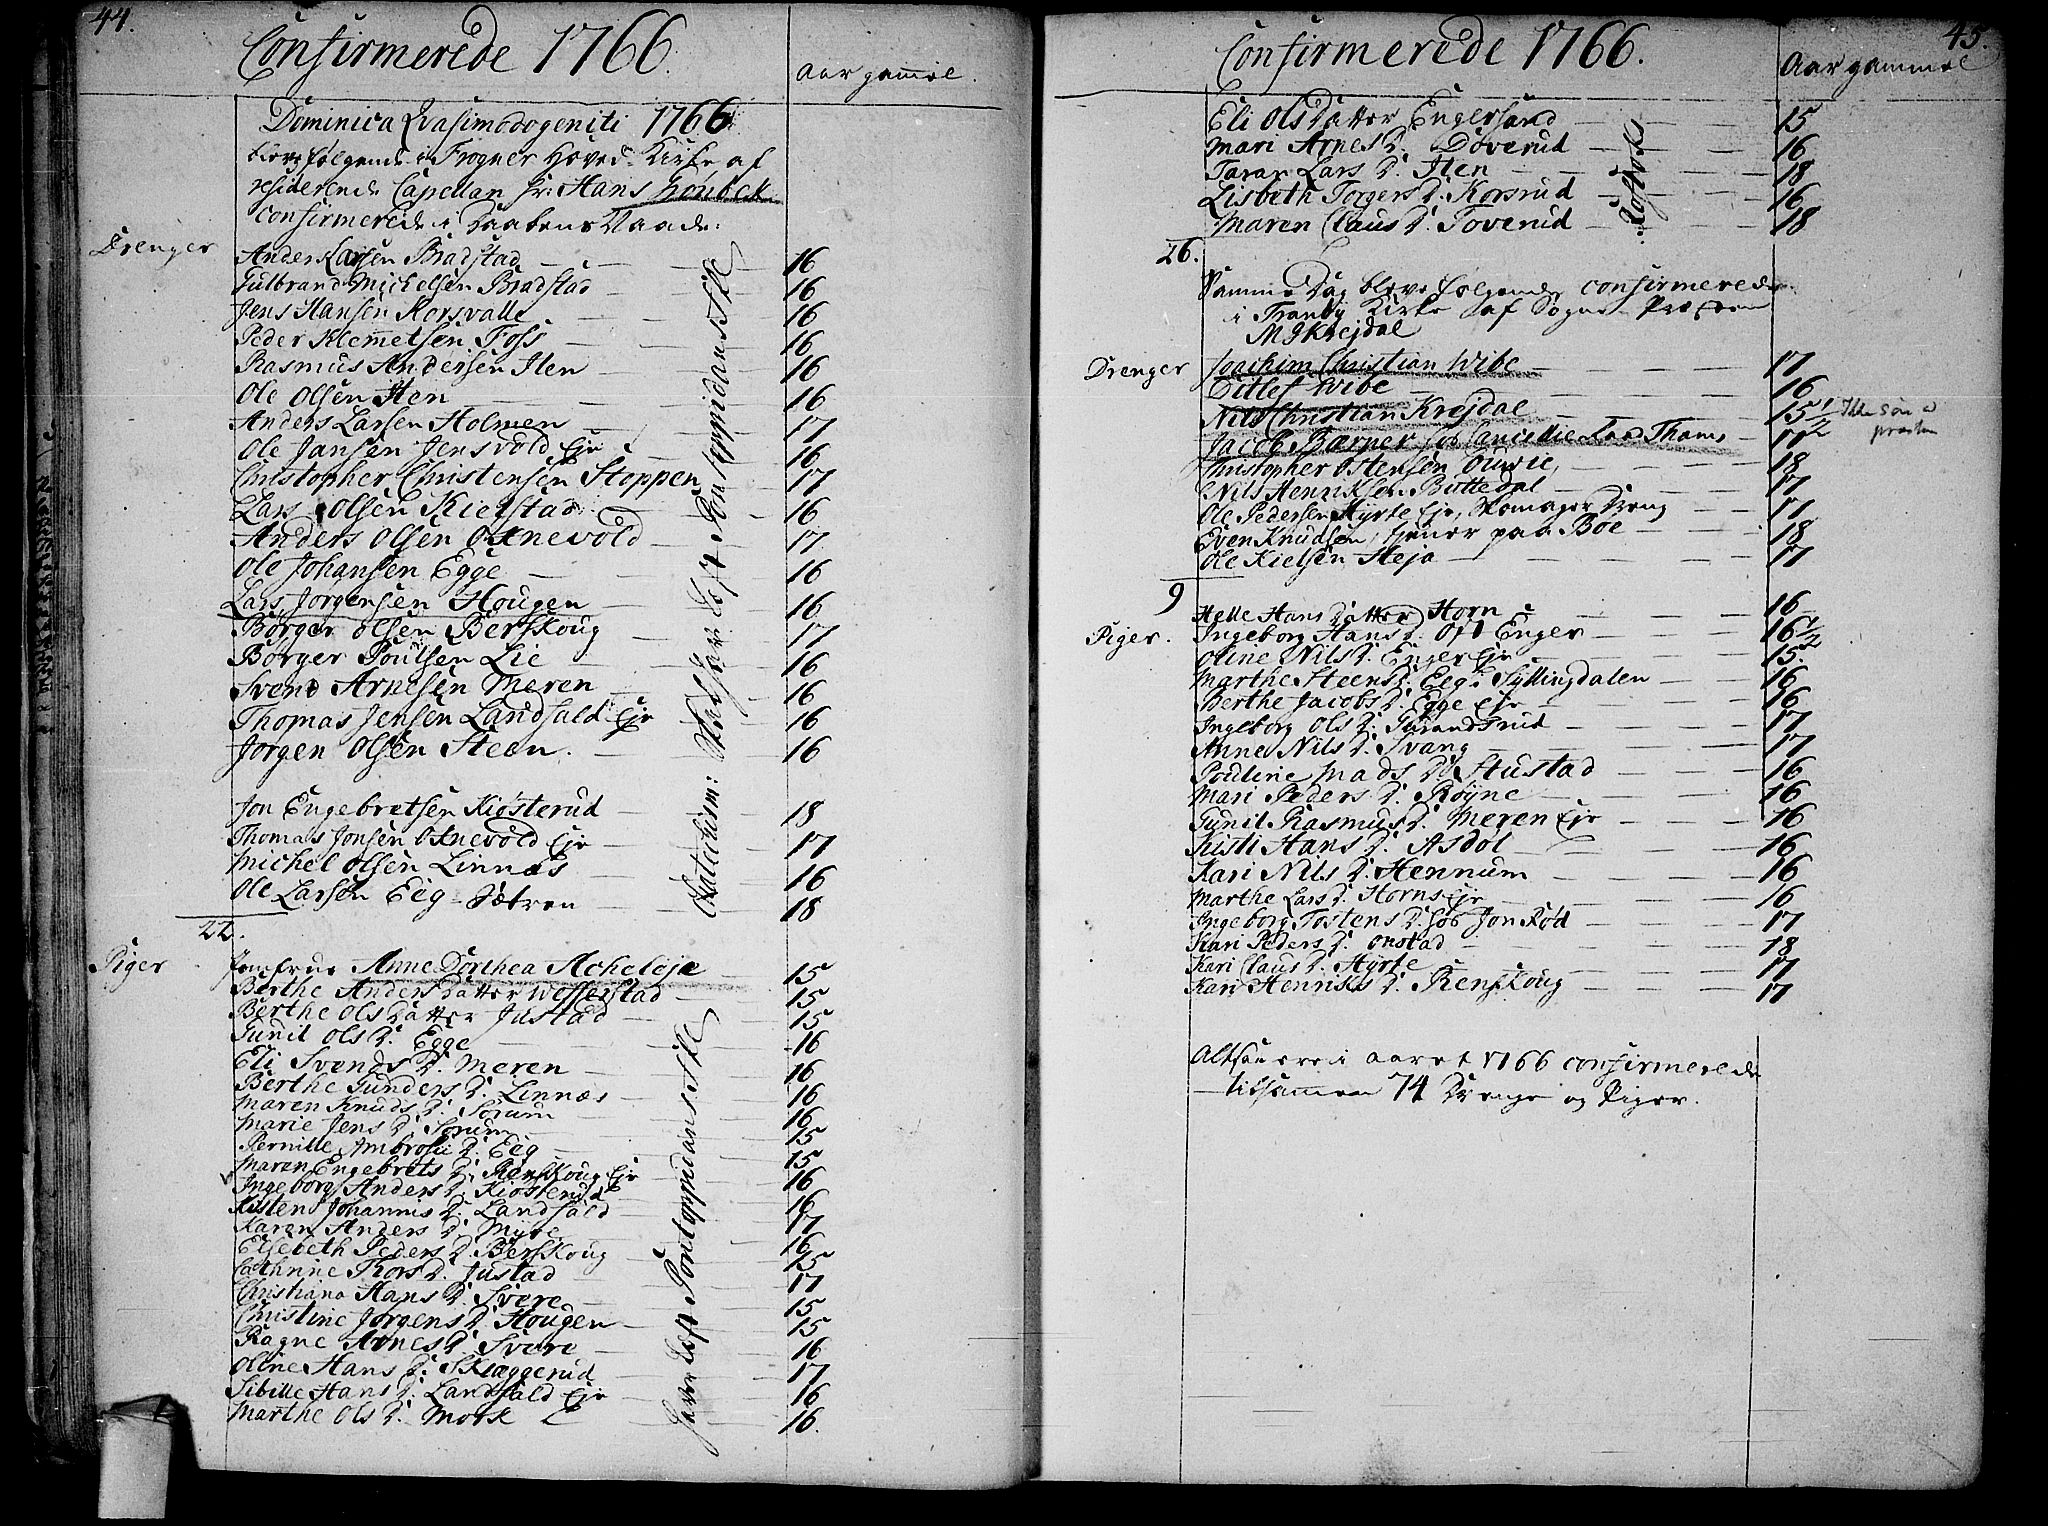 44.
Confirmerede 1766.
Aar gammel.
Dominica Qvasimodogeniti 1766
bleve følgende i Frogner Hoved-Kirke af
residerende Capellan Hr: Hans
confirmerede i Daabens Naade:
Drenger
Anders Larsen Bradstad 16
Gulbrand Michelsen Bradstad 16
Jens Hansen Korsvalle 16
Peder Klemetsen Foss 16
Rasmus Andersen Ilen 16
Ole Olsen Hen 16
Anders Larsen Holmen 17
Ole Jansen Jensvold Eje 16
Christopher Christensen Stoppen 17
Lars Olsen Kierstad 16
Anders Olsen Oxnevold 17
Ole Johansen Egge 16
Lars Jorgensen Hougen 16
Børger Olsen Berskoug 17
Børger Poulsen Lie 16
Svend Arnesen Meren 16
Thomas Jensen Landfald Eje 16
Jørgen Olsen Steen. 16
Jon Engebretsen Kiøsterud 18
Thomas Jonsen Oxnevold Eje 17
Michel Olsen Linnæs 16
Ole Larsen Eeg-Sætren 18
22.
Catechism: Pontoppidans
Piger
Jomfrue Anne Dorthea Acheleje 15
Berthe Anders Datter Wefferstad 15
Berthe Ols Datter Justad 15
Gunil Ols D. Egge 16
Eli Svends D. Meren 16
Berthe Gunders D. Linnæs 16
Maren Knuds D. Sørum 16
Marie Jens D. Sørum 15
Pernille Ambrosii D. Eeg 15
Maren Engebrets D. Renskoug Eje 16
Ingeborg Anders D. Kiøsterud 16
Kisten Johannis D. Landfald 17
Karen Anders D. Myre 16
Elsebeth Peders D. Berskoug 15
Cathrine Thors D. Justad 17
Christiana Hans D. Svere 15
Christine Jørgens D. Hougen 15
Ragne Arnes D. Svere 16
Oline Hans D. Skiæggerud 17
Sibille Hans D. Landfald Eje 16
Marthe Ols D. Mørk 16.
Haver læst Pontoppidans
45.
Confirmerede 1766.
Aar gammel
Eli Ols Datter Engersand 15
Mari Arnes D. Døverud 16
Taran Lars D. Ilen 18
Lisbeth Torgers D. Korsrud 16
Maren Claus D. Toverud 18
26.
Samme Dag bleve følgende confirmerede
i Tranby Kirke af Sogne-Præsten
MGKrejdal
Drenger
Joachim Christian Wibe 17
Ditlef Wibe 16
Nils Christian Krejdal 15 1/2
Ikke søn a
præsten
Jacob Børner hos Cancellie Raad Thams 17
Christopher Ostensen 18
Nils Henriksen Buttedal 17
Ole Pedersen Hyrte Eje, Skomager Dreng 17
Even Knudsen, tjener paa Boe 18
Ole Kielsen Heja 17
9
Piger.
Helle Hans Datter Horn 16
Ingeborg Hans D. Ost Enger 16 1/2
Oline Nils D. Enger Eje 15.
Marthe Steens D. Eeg i Syllingdalen 16
Berthe Jacobs D. Egge Eje 16
Ingeborg Ols D. 17
Anne Nils D. Svang 17
Pouline Mads D. Hustad 16
Mari Peders D. Røyne 16
Gunil Rasmus D. Meren Eje 16
Kisti Hans D. Asdøl 16
Kari Nils D. Hennum 16
Marthe Lars D. Horns Eje 16
Ingeborg Tostens D. hos Jon Rød 17
Kari Peders D. Onstad 18
Kari Claus D. Hyrte 17
Kari Henriks D. Renskoug 17
Altsaa ere i aaret 1766 confirmerede
tilsammen 74 Drenge og Piger.